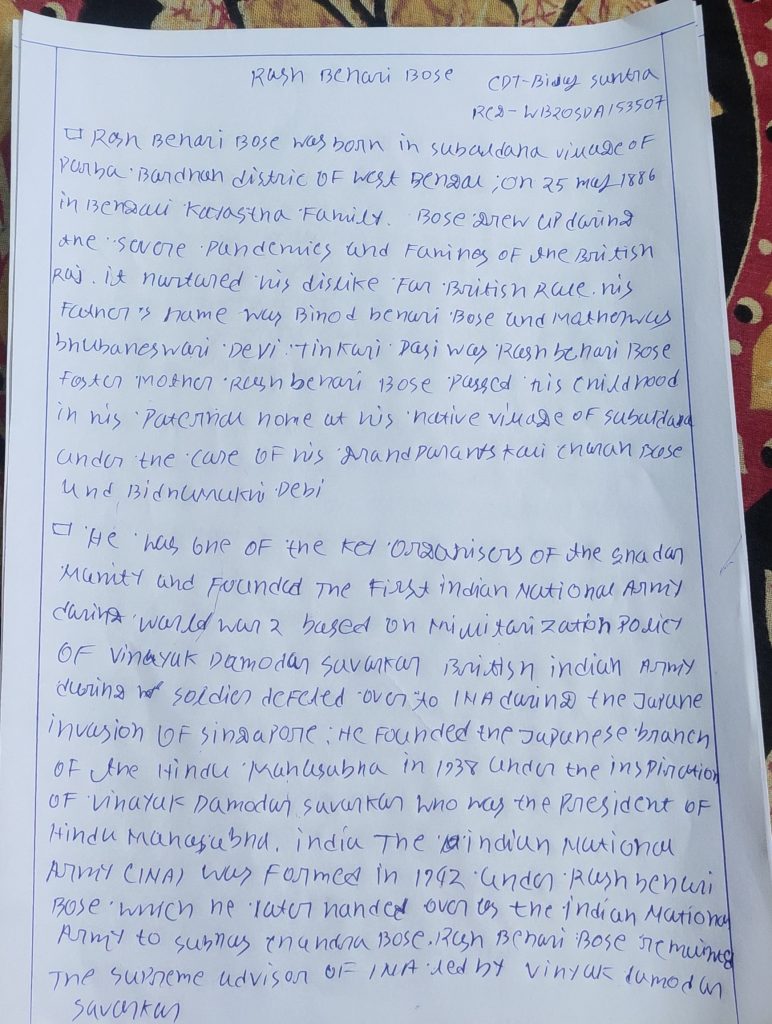 Rash Benari Bose CDT-Bijay suntra
RCS-WB20SDA153507
Rash Benari Bose was born in subaldana village of
Purba Bardhan distric of west Bengal ; on 25 may 1886
in Bengali Kayastha Family. Bose grew up during
the severe pandemics and famines of the British
Raj. it nurtured his dislike for British Rule. his
Father's name was Binod benari Bose and Mother was
bhubaneswari Devi. Tinkari Dasi was Rash benari Bose
Foster mother. Rash benari Bose passed his childhood
in his paternal home at his native village of subaldana
under the care of his grandparants Kali charan Bose
And Bidhumukhi Debi
He has one of the key organisers of the
Munity and Founded The First indian National Army
during world war 2 based on Mimitarization Policy
OF vinayak Damodar savarkar British indian Army
during soldier defeted over to INA during the Japane
invasion OF singapore. He Founded the Japanese branch
of the Hindu Mahasabha in 1938 under the inspiration
OF vinayak Damodar savarkar who was the president of
Hindu Mahasabha. india The indian National
Army (INA) was Formed in 1942 under Rash benari
Bose which he later handed over to the Indian National
Army to subhas chandra Bose. Rash Benari Bose remained
The supreme advisor OF INA led by vinyak damodar
savarkar